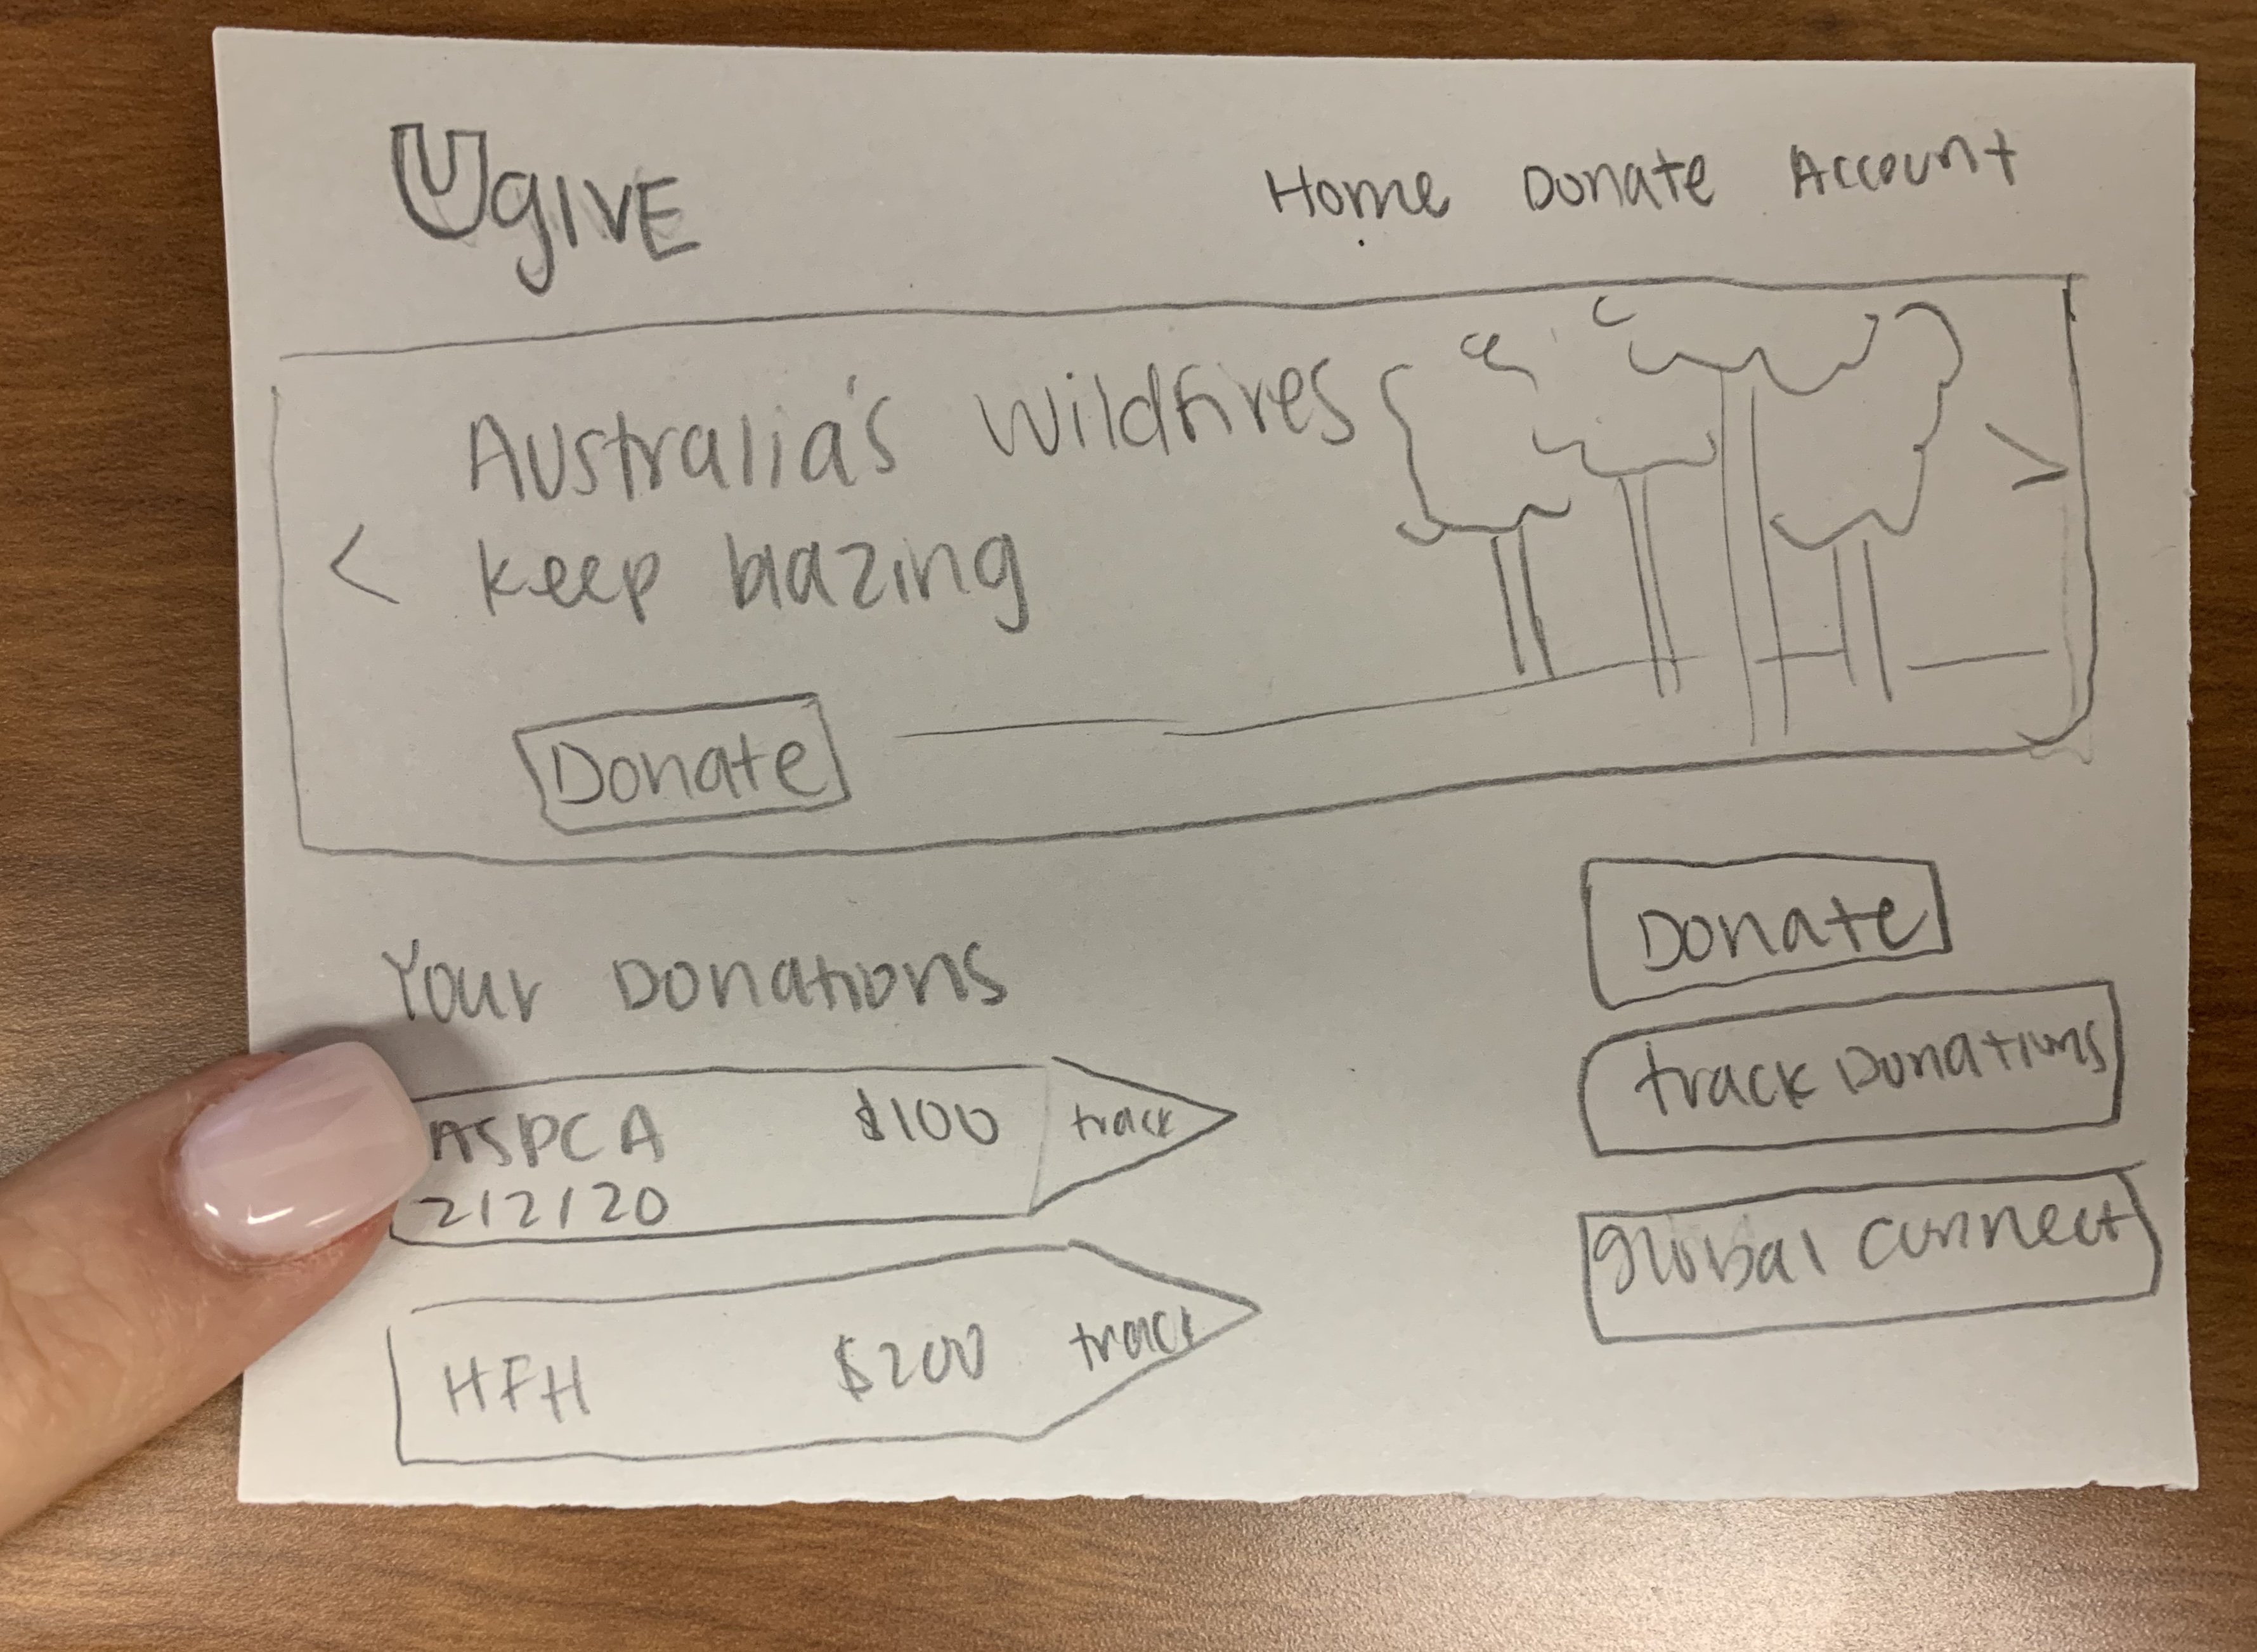 UgIVE
Home Donate Account
Australia's wildfires
keep blazing
<
>
Donate
Your Donations
ASPCA $100 track
2/2/20
HFH $200 track
Donate
track Donations
global connect